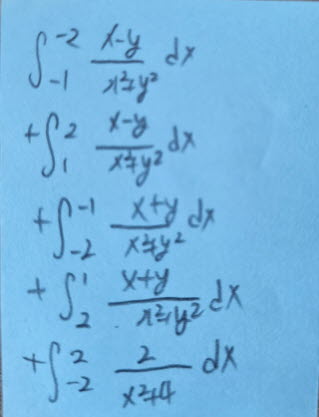 ∫_{-1}^{-2} \frac{x-y}{x²+y²} dx
+ ∫_{1}^{2} \frac{x-y}{x²+y²} dx
+ ∫_{-2}^{-1} \frac{x+y}{x²+y²} dx
+ ∫_{2}^{1} \frac{x+y}{x²+y²} dx
+ ∫_{-2}^{2} \frac{2}{x²+4} dx